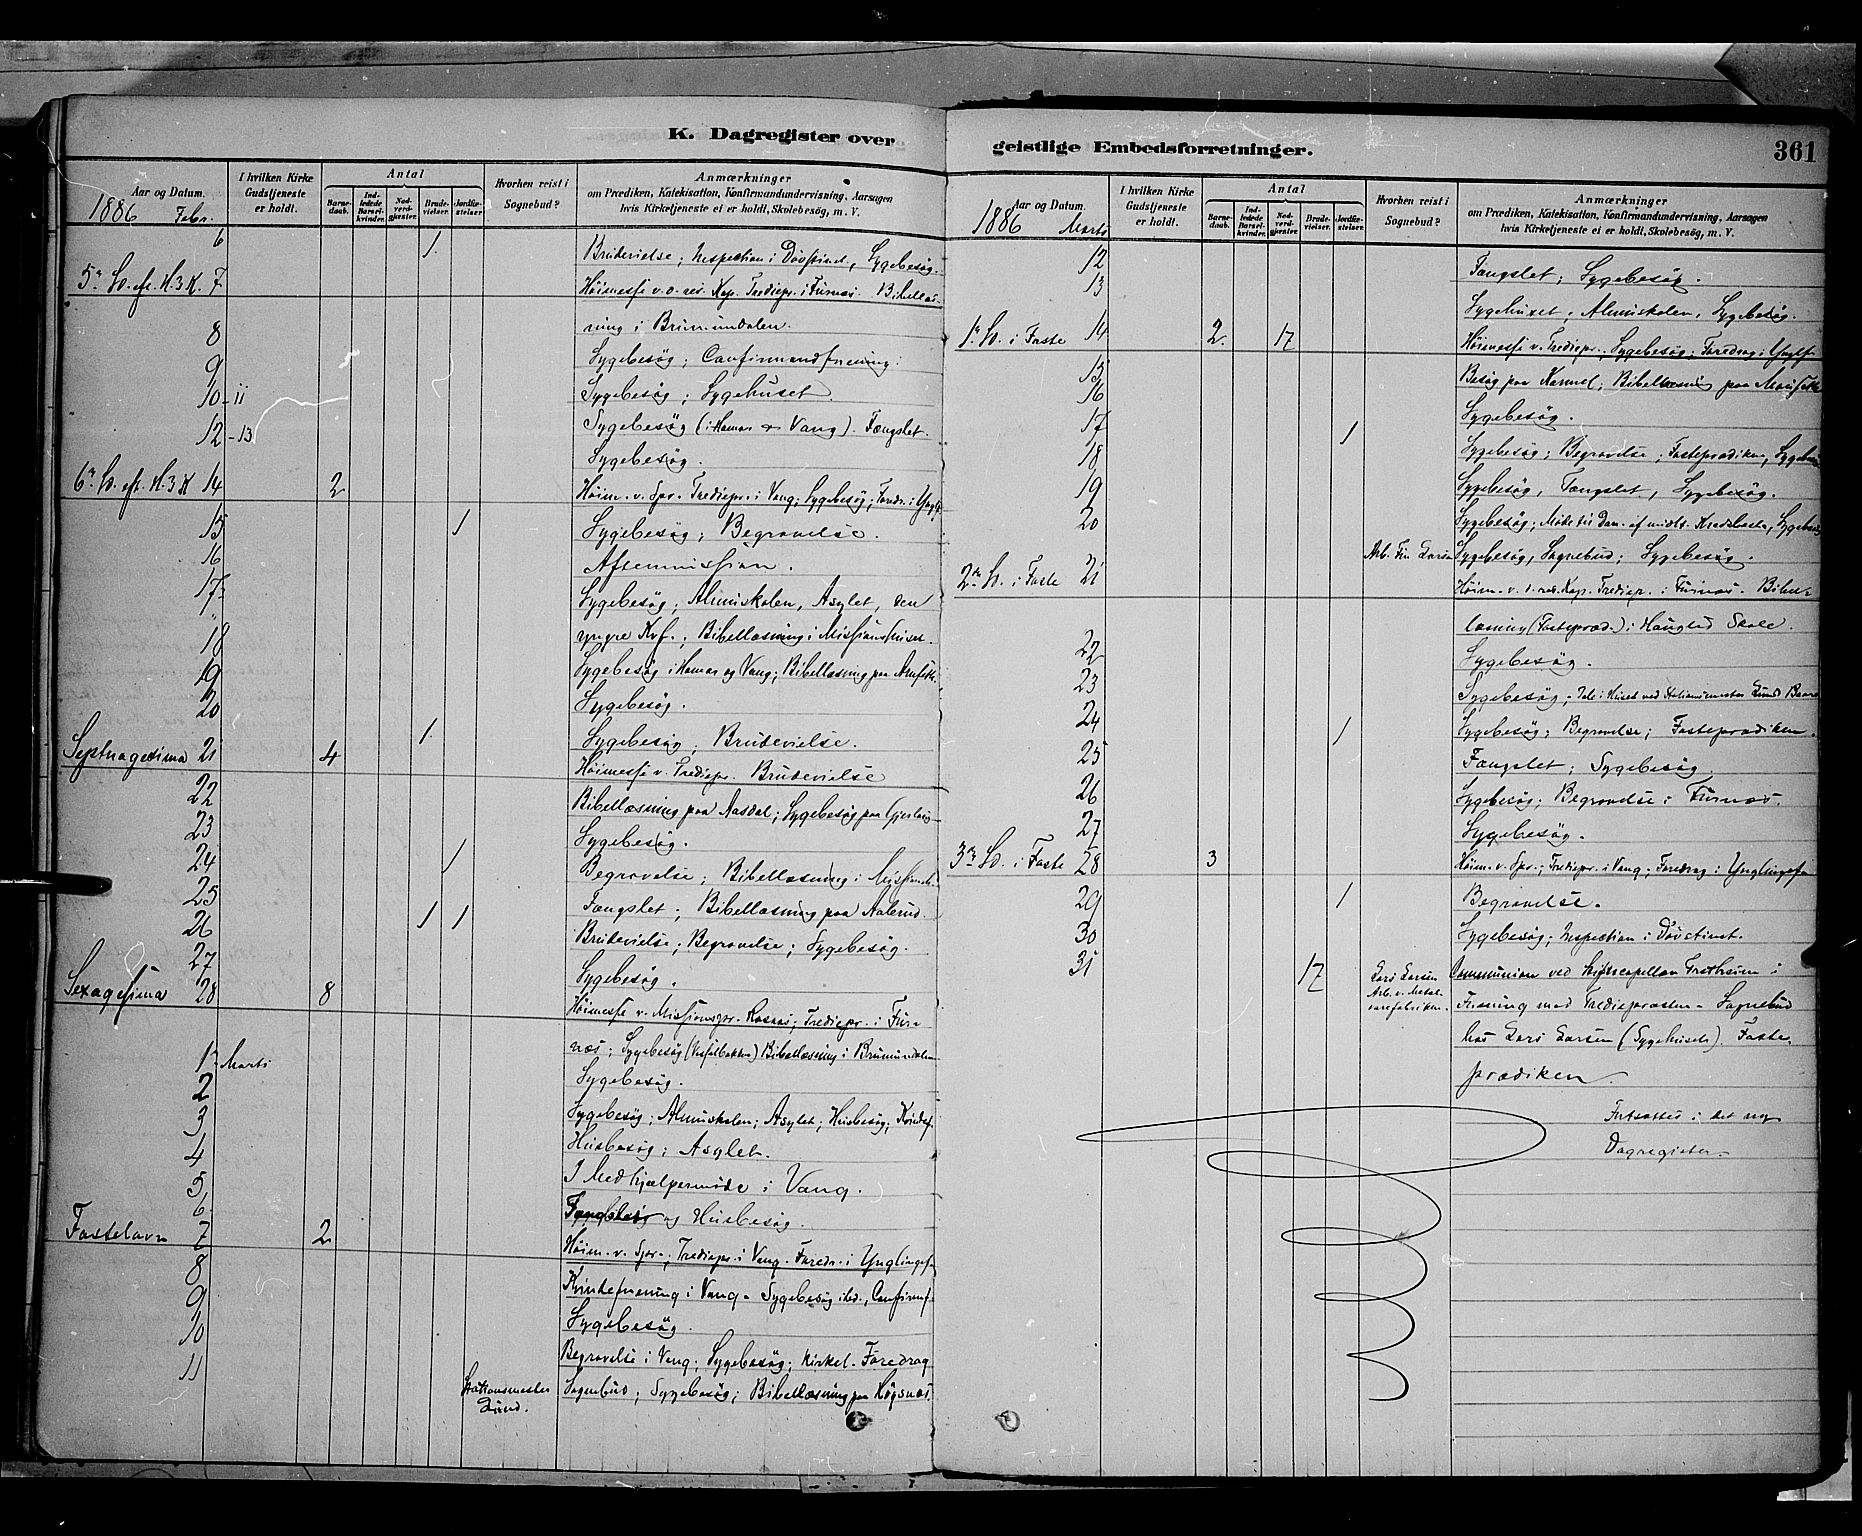 K. Dagregister over
Aar og Datum.
I hvilken Kirke Gudstjeneste er holdt.
Antal
Barnedaab.
Indledede Barselkvinder.
Nadverdgjester.
Brudevielser.
Jordfæstelser.
Hvorhen reist i Sognebud?
Anmærkninger
om Prædiken, Katekisation, Konfirmandundervisning, Aarsagen
hvis Kirketjeneste ei er holdt, Skolebesøg, m. V.
1886 Febr.
6 1. Brudevielse; Inspection i Døvstinst., Sygebesøg.
5te S. ef. H. 3 K. 7. Høimesse v. o. res. Kap. Trediepr. i Furnæs. Bibellæs-
ning i Brumundalen.
8 Sygebesøg; Confirmandforening.
9 Sygebesøg; Sygehuset
10 - 11 Sygebesøg (i Hamar & Vang). Fængslet.
12 - 13 Sygebesøg.
6te S. ef. H. 3 K 14 2 Høim. v. Spr. Tredispr. i Vang; Sygebesøg; Foredr. i Yngl.f.
15 1 Sygebesøg; Begravelse.
16 Aftenmission.
17 Sygebesøg; Almuskolen, Asylet, den
" yngre Kvf.; Bibellæsning i Missionshuset.
18 Sygebesøg i Hamar og Vang; Bibellæsning paa
19 Sygebesøg.
20 1. Sygebesøg; Brudevielse.
Septuagesima 21 4 Høimesse v. Trediepr. Brudevielse
22 Bibellæsning paa Aasdal; Sygebesøg paa
23 Sygebesøg.
24 1 Begravelse; Bibellæsning i Missionsh.
25 Fængslet; Bibellæsning paa Aalerud.
26 1 1 Brudevielse; Begravelse; Sygebesøg.
27 Sygebesøg.
Sexagesima 28 8 Høimesse v. Missionspr. Trediepr. i Fur-
næs; Sygebesøg Bibellæsning i Brumundalen
1ste Marts Sygebesøg.
2 Sygebesøg; Almuskolen; Asylet; Husbesøg; Kvindef.
3 Husbesøg; Asylet.
4 I Medhjælpermøde i Vang.
5 og Husbesøg.
6
Fastelavn 7 2 Høim. v. Spr.; Trediepr. i Vang. Foredr. i Ynglingef.
8 Kvindeforening i Vang. Sygebesøg ibid., Confirmf.
9 Sygebesøg.
10 Begravelse i Vang; Sygebesøg; Kirkel. Foredrag
11 Stationsmester Lund. Sognebud; Sygebesøg; Bibellæsning paa Høgsnæs
geistlige Embedsforretninger.
361
Aar og Datum.
I hvilken Kirke Gudstjeneste er holdt.
Antal
Barnedaab.
Indledede Barselkvinder.
Nadverdgjester.
Brudevielser.
Jordfæstelser.
Hvorhen reist i Sognebud?
Anmærkninger
om Prædiken, Katekisation, Konfirmandundervisning, Aarsagen
hvis Kirketjeneste ei er holdt, Skolebesøg, m. V.
1886 Marts
12 Fængslet; Sygebesøg.
13 Sygehuset; Almuskolen, Sygebesøg.
1ste S. i Faste 14 2. 17 Høimesse v. Trediepr., Sygebesøg; Foredrag i Yngl.f.
15 Besøg paa Karmel; Bibellæsning paa
16 Sygebesøg.
17 1 Sygebesøg; Begravelse; Fasteprædiken, Sygebesøg
18 Sygebesøg, Fængslet, Sygebesøg.
19 Sygebesøg; Møde til Dan. af midl. Kredsbest., Sygebesøg
20 Arb. Larsen Sygebesøg, Sognebud; Sygebesøg.
2den S. i Faste 21 Høim. v. o. res. Kap. Trediepr. i Furnæs. Bibel-
læsning (Fastepræd.) i Haugtad Skole.
22 Sygebesøg.
23 Sygebesøg, Tale i Huset ved Stationsmester Lund
24 1 Sygebesøg; Begravelse; Fasteprædiken.
25 Fængslet; Sygebesøg.
26 Sygebesøg; Begravelse i Furnæs.
27 Sygebesøg.
3die S. i Faste 28 3 Høim. v. Spr.; Trediepr. i Vang; Foredrag i Ynglingef.
29 1 Begravelse.
30 Sygebesøg; Inspection i Døvstinst.
31 17 Lars Larsen Arb. v. Metalvarefabriken. Communion ved Stiftscapellan i
Forening med Trediepræsten. Sognebud
hos Lars Larsen (Sygehuset). Faste-
prædiken.
Fortsættes i det nye
Dagregister.